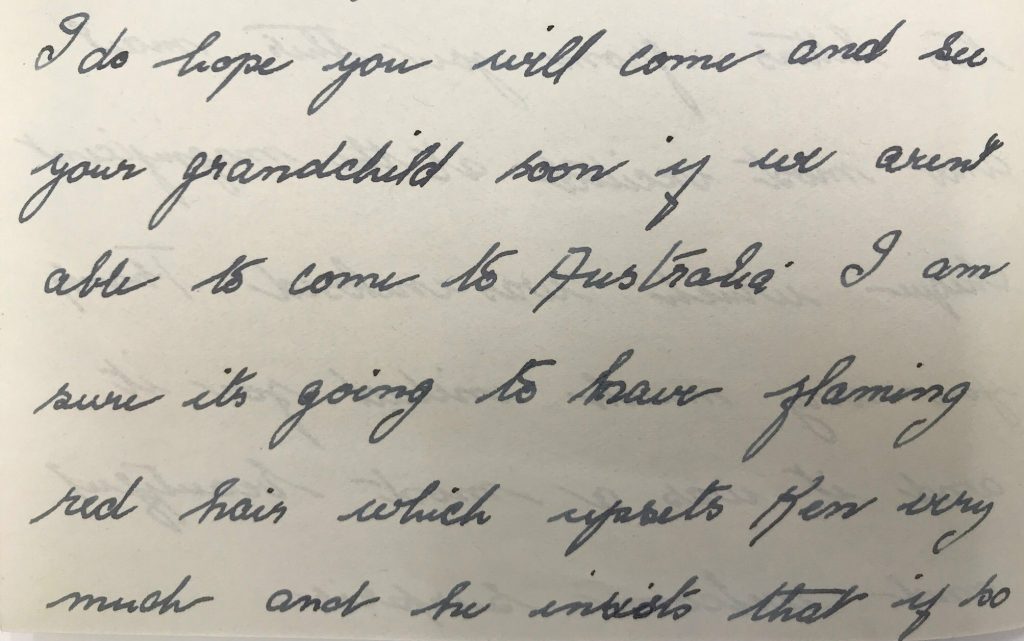 I do hope you will come and see
your grandchild soon if we aren't
able to come to Australia. I am
sure its going to have flaming
red hair which upsets Ken very
much and he insists that if so